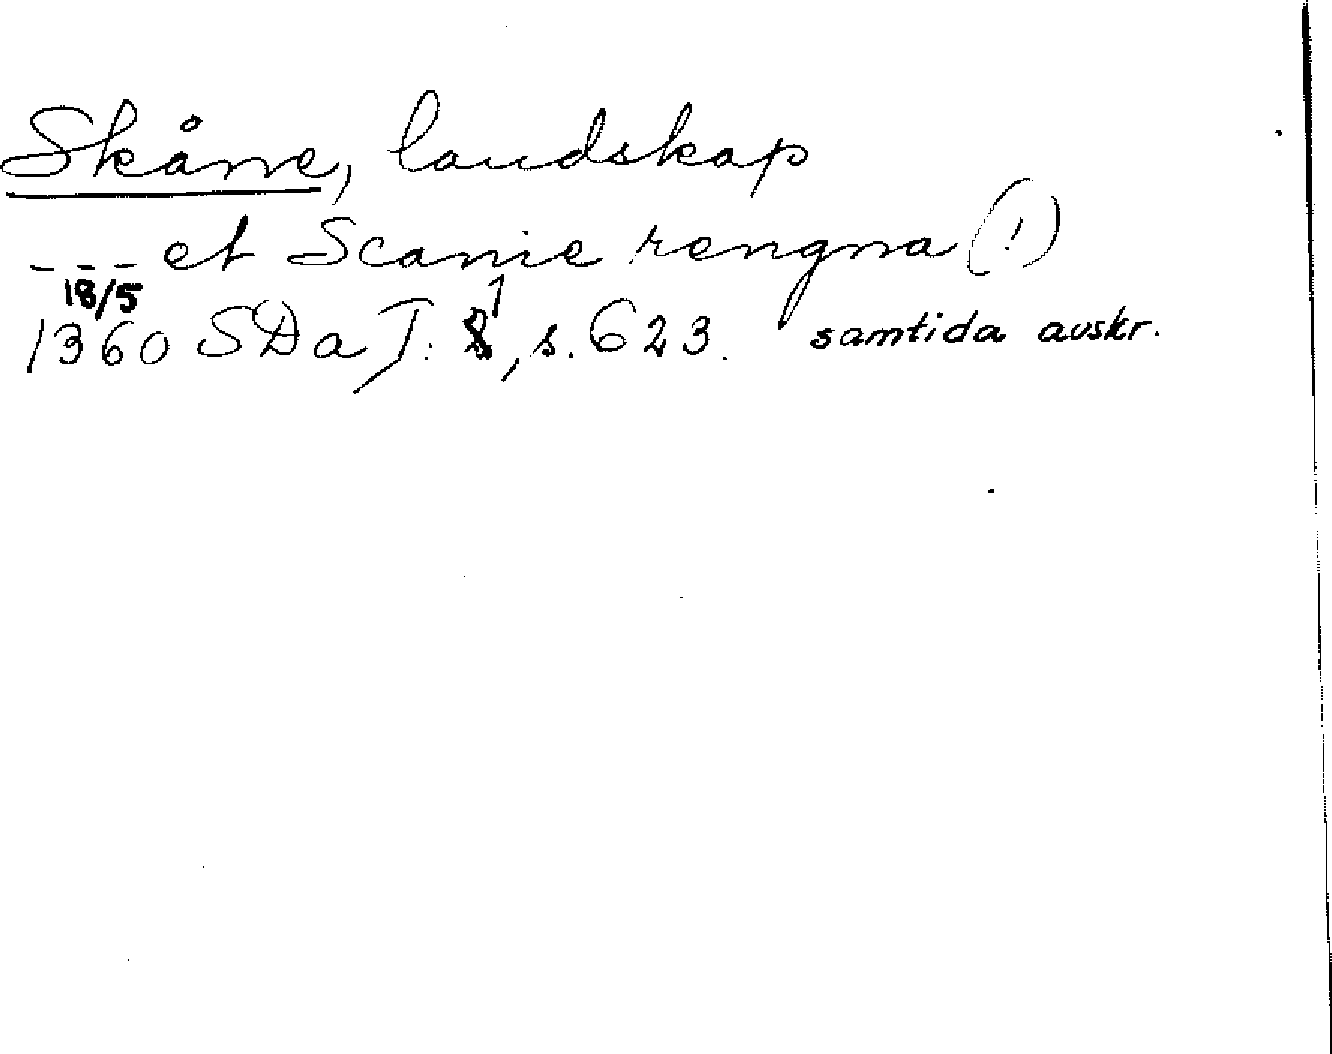 Skåne, landskap
--- et Scanie rengna (!)
18/5
1360 SDa I: 1, s. 623. samtida avskr.